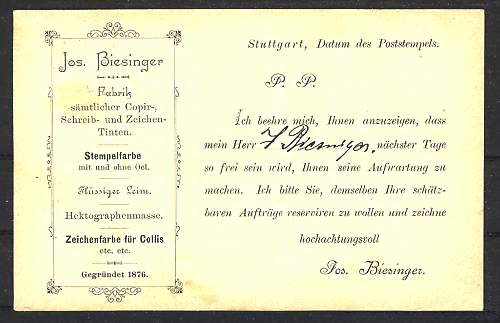 Jos. Biesinger
Fabrik
sämtlicher Copir-,
Schreib- und Zeichen-
Tinten.
Stempelfarbe
mit und ohne Oel.
Flüssiger Leim.
Hektographenmasse.
Zeichenfarbe für Collis
etc. etc.
Gegründet 1876.
Stuttgart, Datum des Poststempels.
P. P.
Ich beehre mich, Ihnen anzuzeigen, dass
mein Herr J Biesinger, nächster Tage
so frei sein wird, Ihnen seine Aufwartung zu
machen. Ich bitte Sie, demselben Ihre schätz-
baren Aufträge reserviren zu wollen und zeichne
hochachtungsvoll
Jos. Biesinger.